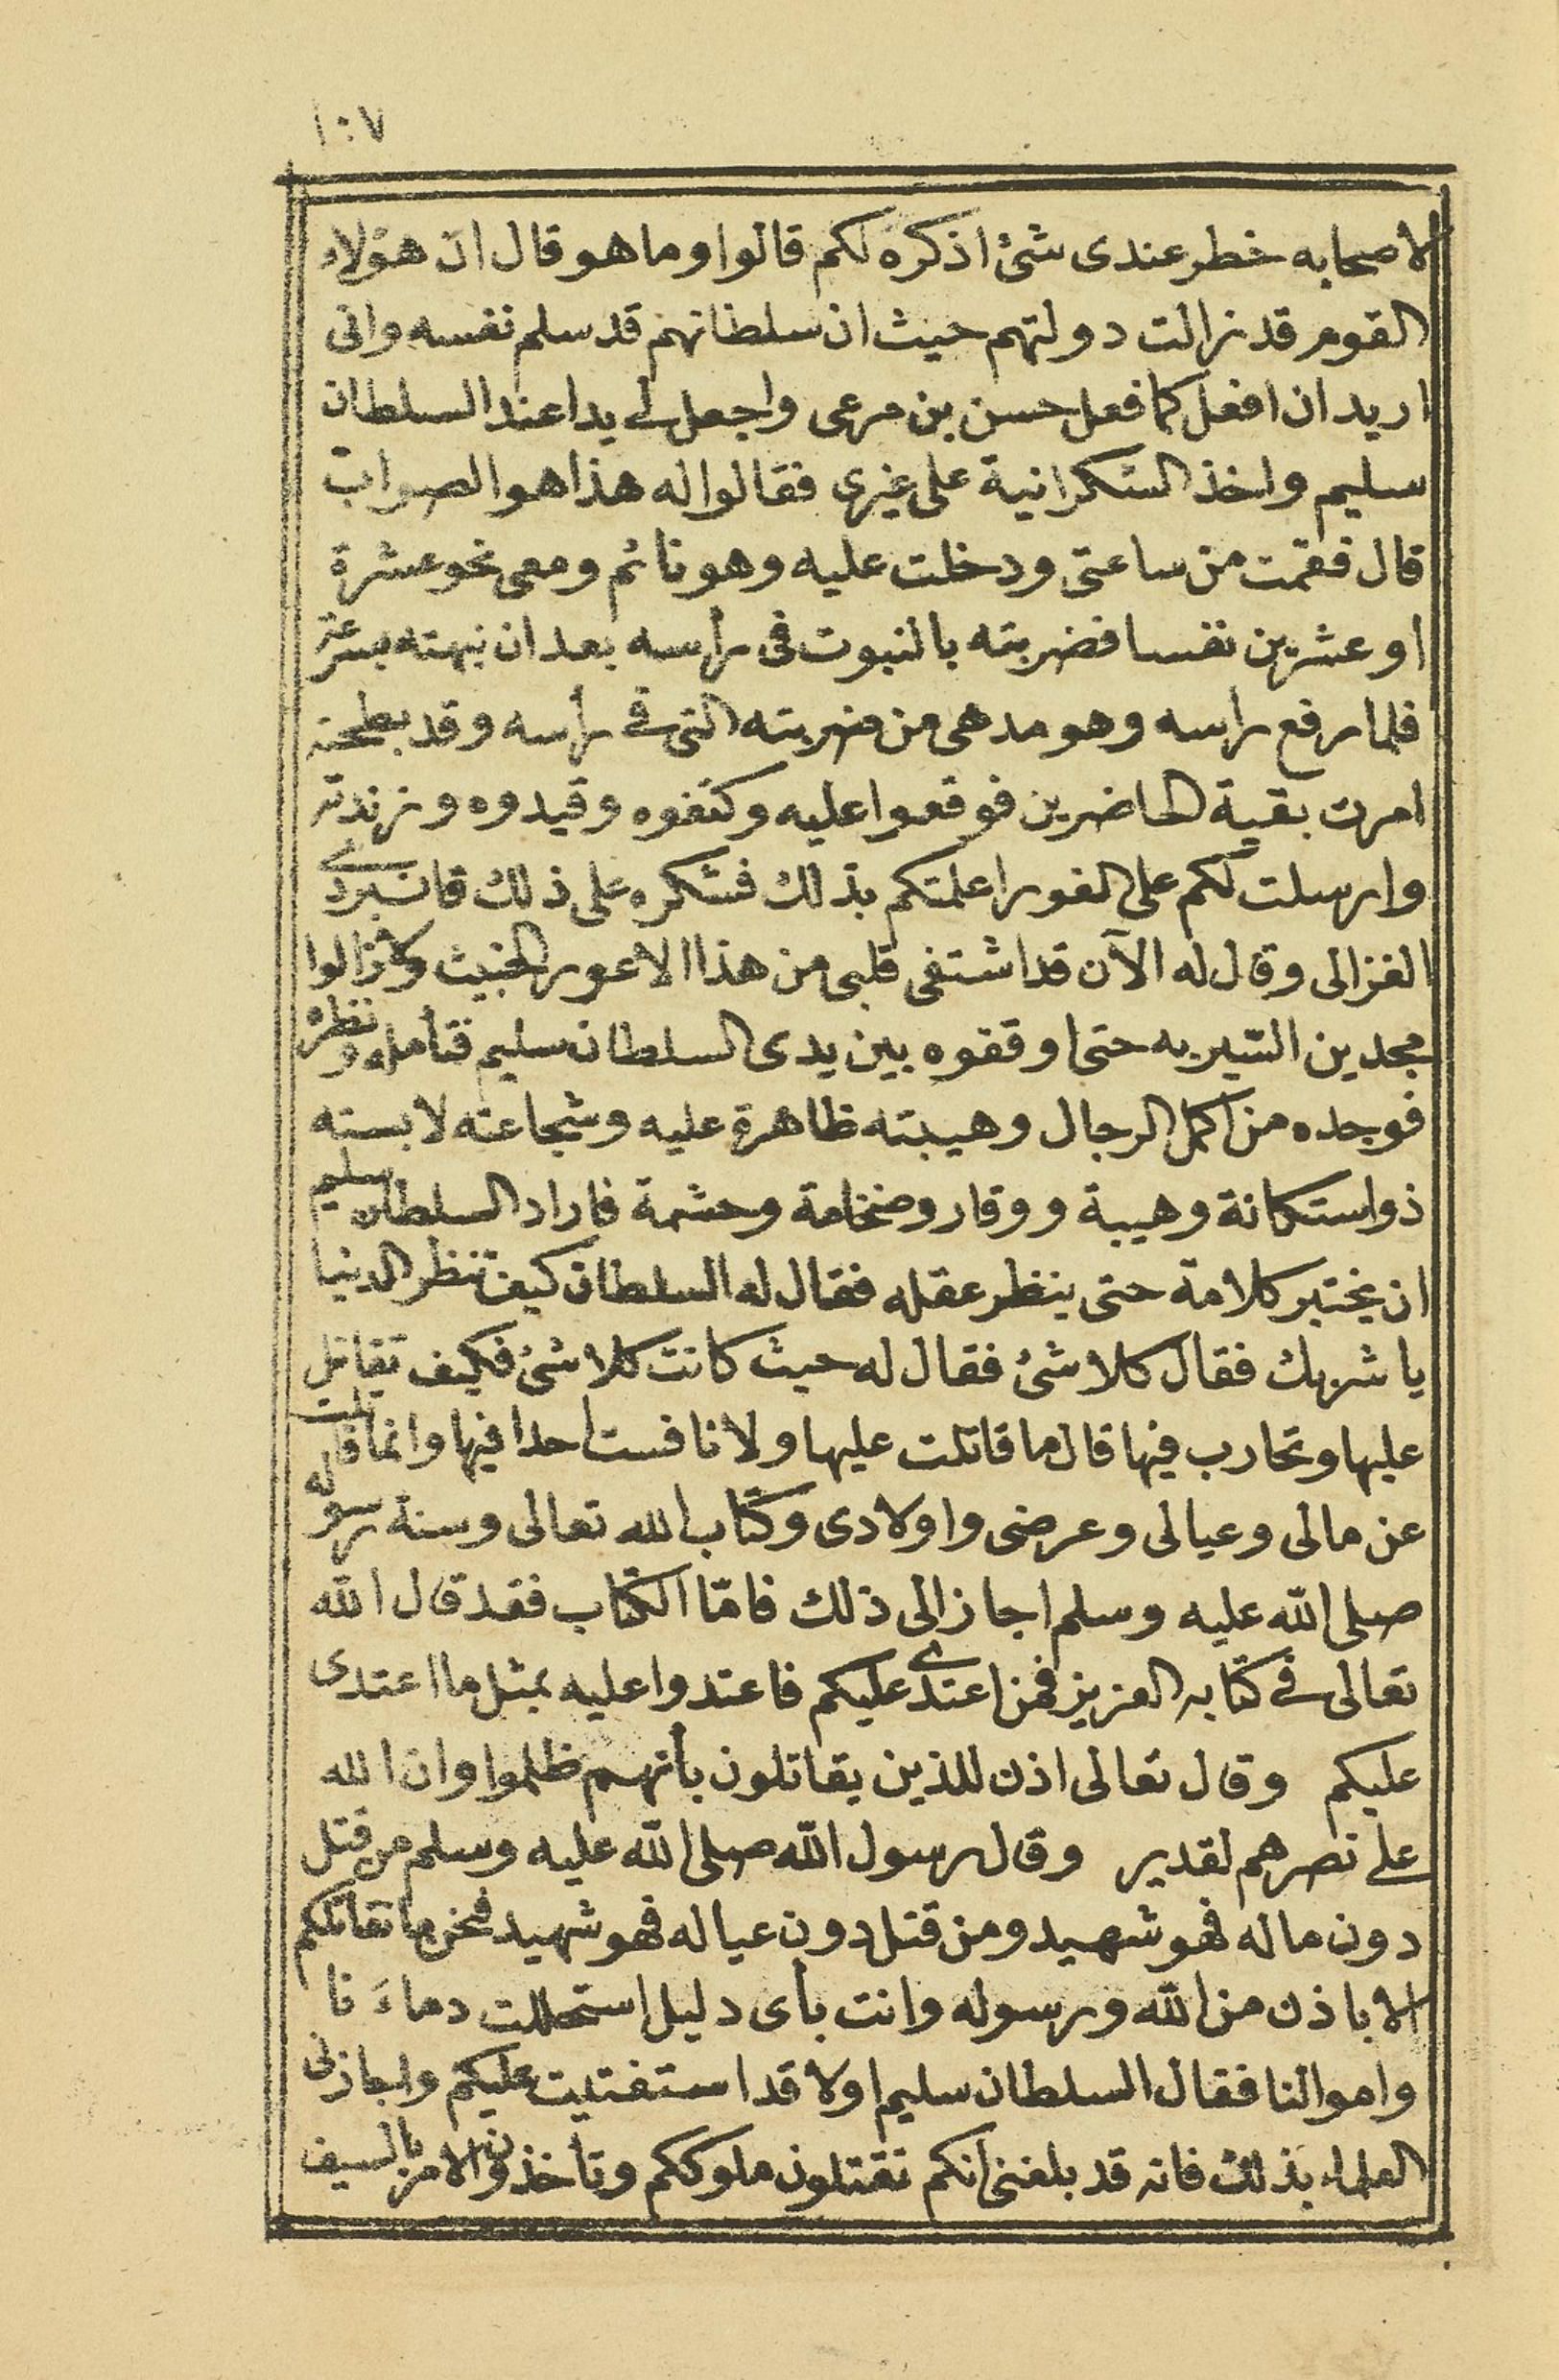 ١٠٧
لاصحابه خطر عندى شئ اذكره لكم قالوا وما هو قال ان هؤلاء
القوم قد زالت دولتهم حيث ان سلطانهم قد سلم نفسه وانى
اريد ان افعل كما فعل حسن بن مرعى واجعل لى يدا عند السلطان
سليم واخذ الشكرانية على غيرى فقالوا له هذا هو الصواب
قال فقمت من ساعتى ودخلت عليه وهو نائم ومعى نحو عشرة
او عشرين نفسا فضربته بالنبوت فى رأسه بعد ان نبهته بسرعة
فلما رفع راسه وهو مدهى من ضربته التى فى رأسه وقد بطحته
امرت بقية الحاضرين فوقعوا عليه وكتفوه وقيدوه وزندته
وارسلت لكم على الفور اعلمتكم بذلك فشكره على ذلك قانبردى
الغزالى وقال له الآن قد اشتفى قلبى من هذا الاعور الخبيث ولا زالوا
مجدين السّير به حتى اوقفوه بين يدى السلطان سليم فتأمله ونظره
فوجده من اكمل الرجال وهيبته ظاهرة عليه وشجاعته لابسته
ذو استكانة وهيبة ووقار وضخامة وحشمة فاراد السلطان سليم
ان يختبر كلامة حتى ينظر عقله فقال له السلطان كيف تنظر الدنيا
يا شربك فقال كلا شئ فقال له حيث كانت كلا شئ فكيف تقاتل
عليها وتحارب فيها قال ما قاتلت عليها ولا نافست احدا فيها وانما قاتلت
عن مالى وعيالى وعرضى واولادى وكتاب الله تعالى وسنة رسوله
صلى الله عليه وسلم اجاز الى ذلك فامّا الكتاب فقد قال الله
تعالى فى كتابه العزيز فمن اعتدى عليكم فاعتدوا عليه بمثل ما اعتدى
عليكم وقال تعالى اذن للذين يقاتلون بأنهم ظلموا وان الله
على نصرهم لقدير وقال رسول الله صلى الله عليه وسلم من قتل
دون ماله فهو شهيد ومن قتل دون عياله فهو شهيد فنحن ما نقاتلكم
الا باذن من الله ورسوله وانت بأى دليل استحللت دماءَ نا
واموالنا فقال السلطان سليم اولا قد استفتيت عليكم واجاز لى
العلماء بذلك فانه قد بلغنى انكم تقتلون ملوككم وتأخذون الامر بالسيف